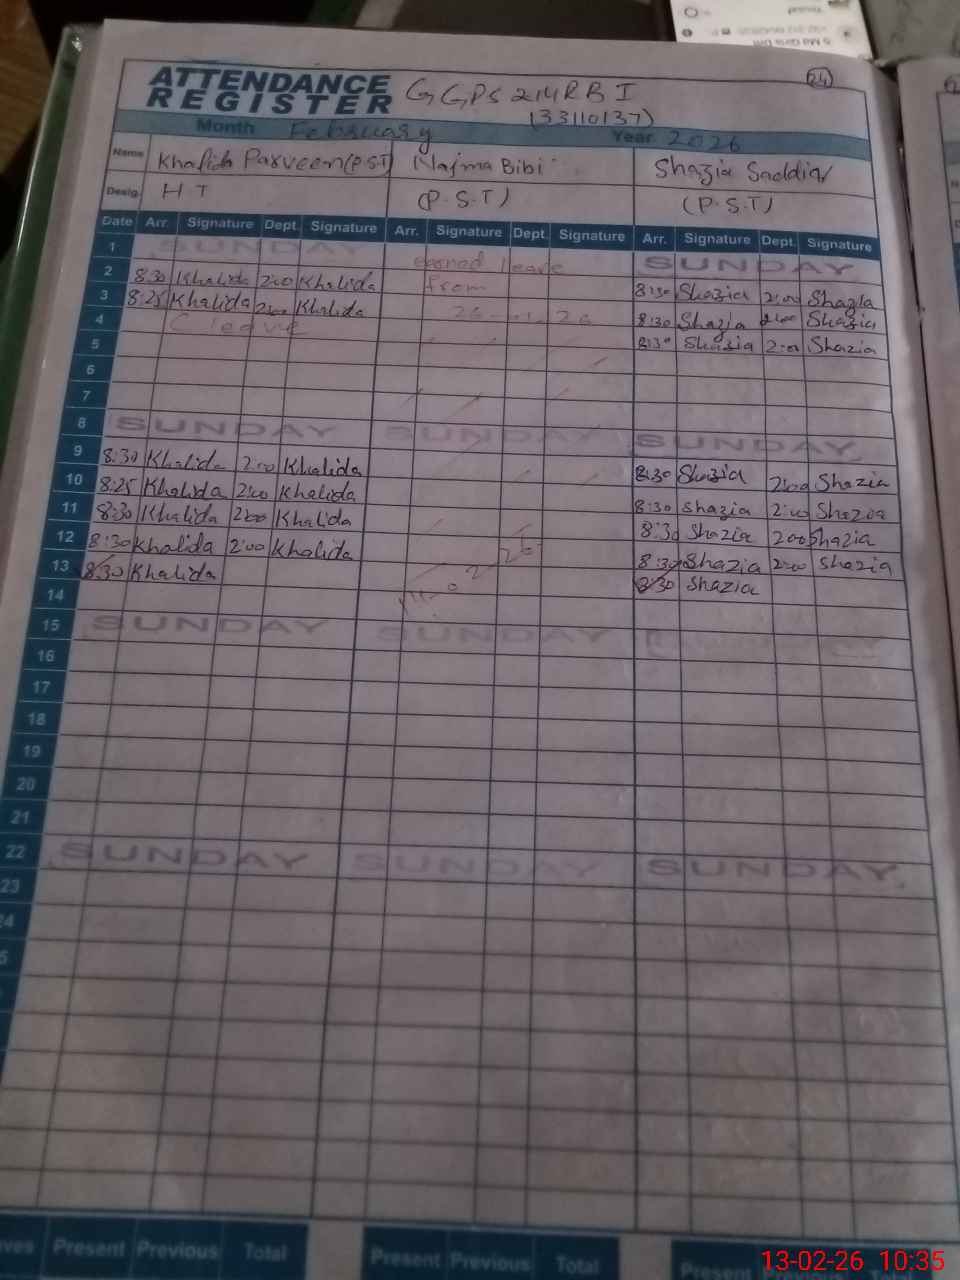 24
ATTENDANCE REGISTER GGPS 214 RB I
(33110137)
Month February Year 2026
Name Khalida Parveen (P.S.T) Najma Bibi Shazia Saddia
Desig. HT (P.S.T) (P.S.T)
Date Arr. Signature Dept. Signature Arr. Signature Dept. Signature Arr. Signature Dept. Signature
1 SUNDAY earned leave SUNDAY
2 8:30 Khalida 2:00 Khalida from 8:30 Shazia 2:00 Shazia
3 8:25 Khalida 2:00 Khalida 8:30 Shazia 2:00 Shazia
4 C leave 8:30 Shazia 2:00 Shazia
5
6
7
8 SUNDAY SUNDAY SUNDAY
9 8:30 Khalida 2:00 Khalida 8:30 Shazia 2:00 Shazia
10 8:25 Khalida 2:00 Khalida 8:30 Shazia 2:00 Shazia
11 8:30 Khalida 2:00 Khalida 8:30 Shazia 2:00 Shazia
12 8:30 Khalida 2:00 Khalida 8:30 Shazia 2:00 Shazia
13 8:30 Khalida 8:30 Shazia
14
15 SUNDAY SUNDAY SUNDAY
16
17
18
19
20
21
22 SUNDAY SUNDAY SUNDAY
23
Present Previous Total Present Previous Total Present
13-02-26 10:35